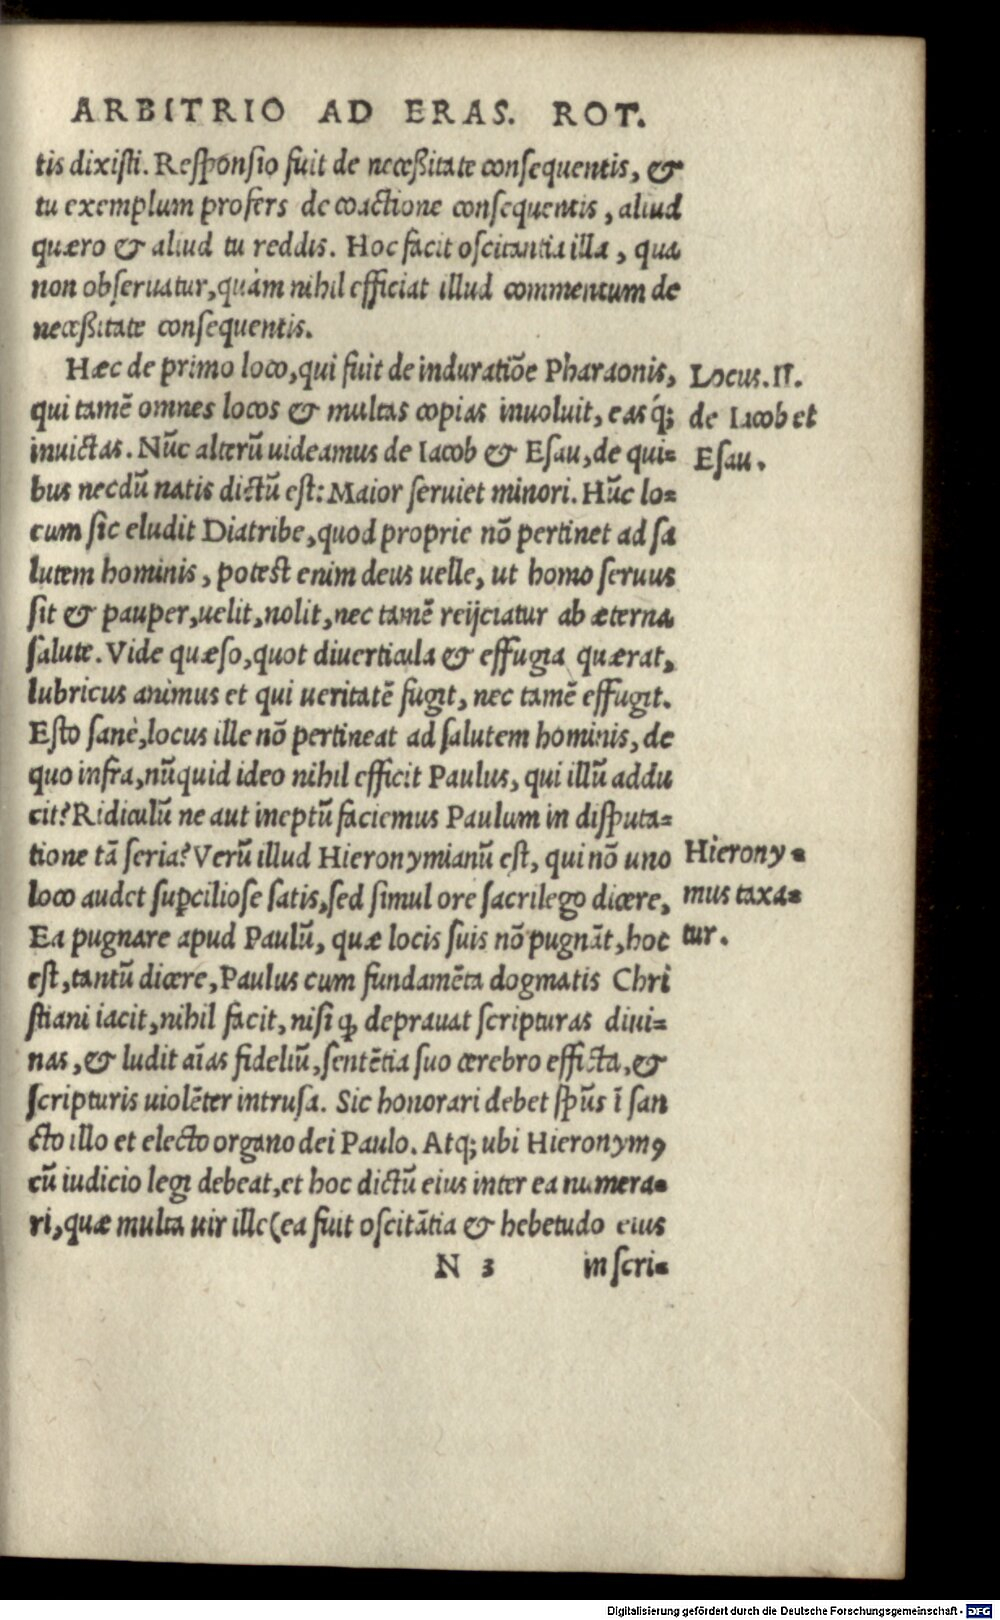 ARBITRIO AD ERAS. ROT.
tis dixisti. Responsio fuit de neceßitate consequentis, &
tu exemplum profers de coactione consequentis, aliud
quæro & aliud tu reddis. Hoc facit oscitantia illa, qua
non obseruatur, quàm nihil efficiat illud commentum de
neceßitate consequentis.
Hæc de primo loco, qui fuit de induratiõe Pharaonis,
qui tamẽ omnes locos & multas copias inuoluit, easq́;
inuictas. Nũc alterũ uideamus de Iacob & Esau, de qui=
bus necdũ natis dictũ est: Maior seruiet minori. Hũc lo=
cum sic eludit Diatribe, quod proprie nõ pertinet ad sa
lutem hominis, potest enim deus uelle, ut homo seruus
sit & pauper, uelit, nolit, nec tamẽ reijciatur ab æterna
salute. Vide quæso, quot diuerticula & effugia quærat,
lubricus animus et qui ueritatẽ fugit, nec tamẽ effugit.
Esto sanè, locus ille nõ pertineat ad salutem hominis, de
quo infra, nũquid ideo nihil efficit Paulus, qui illũ addu
cit? Ridiculũ ne aut ineptũ faciemus Paulum in disputa=
tione tã seria? Verũ illud Hieronymianũ est, qui nõ uno
loco audet suꝑciliose satis, sed simul ore sacrilego dicere,
Ea pugnare apud Paulũ, quæ locis suis nõ pugnãt, hoc
est, tantũ dicere, Paulus cum fundamẽta dogmatis Chri
stiani iacit, nihil facit, nisi ꝙ deprauat scripturas diui=
nas, & ludit aĩas fideliũ, sentẽtia suo cerebro efficta, &
scripturis uiolẽter intrusa. Sic honorari debet spũs ĩ san
cto illo et electo organo dei Paulo. Atq; ubi Hieronymꝰ
cũ iudicio legi debeat, et hoc dictũ eius inter ea numera=
ri, quæ multa uir ille (ea fuit oscitãtia & hebetudo eius
N 3 in scri=
Locus. II.
de Iacob et
Esau.
Hierony=
mus taxa=
tur.
Digitalisierung gefördert durch die Deutsche Forschungsgemeinschaft - DFG